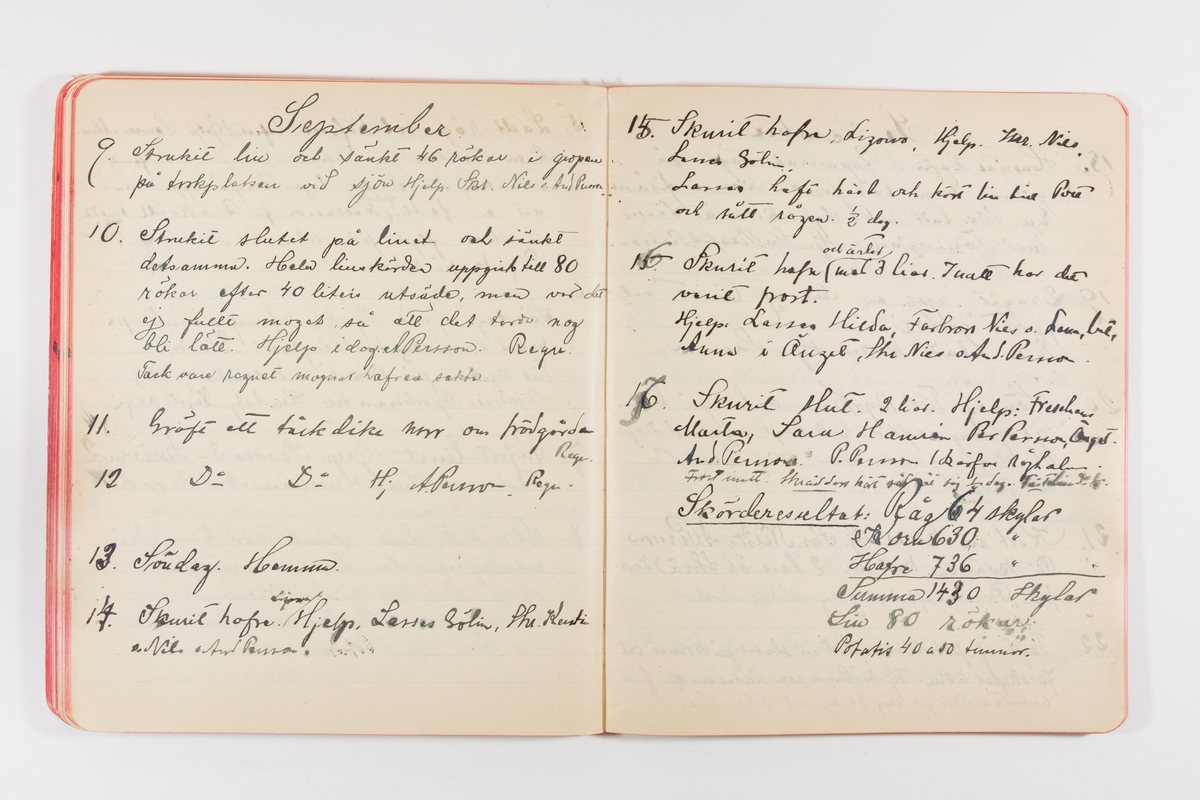 September
9. Strukit lin och sänkt 46 rökar i gropen
på torkplatsen vid sjön Hjelp. Skr. Nils o. And Persson
10. Strukit slutet på linet och sänkt
detsamma. Hela linskörden uppgick till 80
rökar efter 40 liters utsäde, men var det
ej fullt moget så att det torde nog
bli lätt. Hjelp i dag. A Persson. Regn.
Tack vare regnet mognar hafren sakta.
11. Gräft ett täckdike norr om
Regn.
12 Do Do Hj. A Persson. Regn.
13. Söndag. Hemma.
14. Skurit hafre. Hjelp. Lasses Hilda, Skr.
o Nils o And Persson.
15. Skurit hafre, Hjelp. Skr. Nils,
Lasses
Lasses haft häst och kört lin till
och sått rågen. 1/2 dag.
och ärtor
16 Skurit hafre (med 3 liar. I natt har det
varit frost.
Hjelp. Lasses Hilda, Farbror Nils o. Lena,
Anna i Änget, Skr Nils o And. Persson.
17. Skurit slut. 2 liar. Hjelp:
Marta, Sara Hansén Per Persson, Änget.
And. Persson. P. Persson
Frost i natt.
Skörderesultat: Råg 64 skylar
Korn 630 "
Hafre 736 "
Summa 1430 Skylar
Lin 80 rökar
Potatis 40 a 50 tunnor.